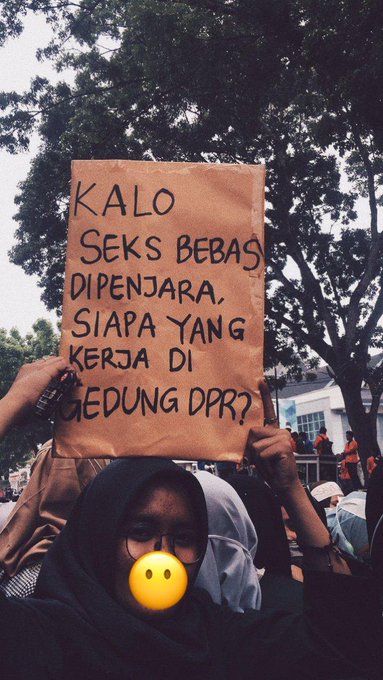 KALO
SEKS BEBAS
DIPENJARA,
SIAPA YANG
KERJA DI
GEDUNG DPR?